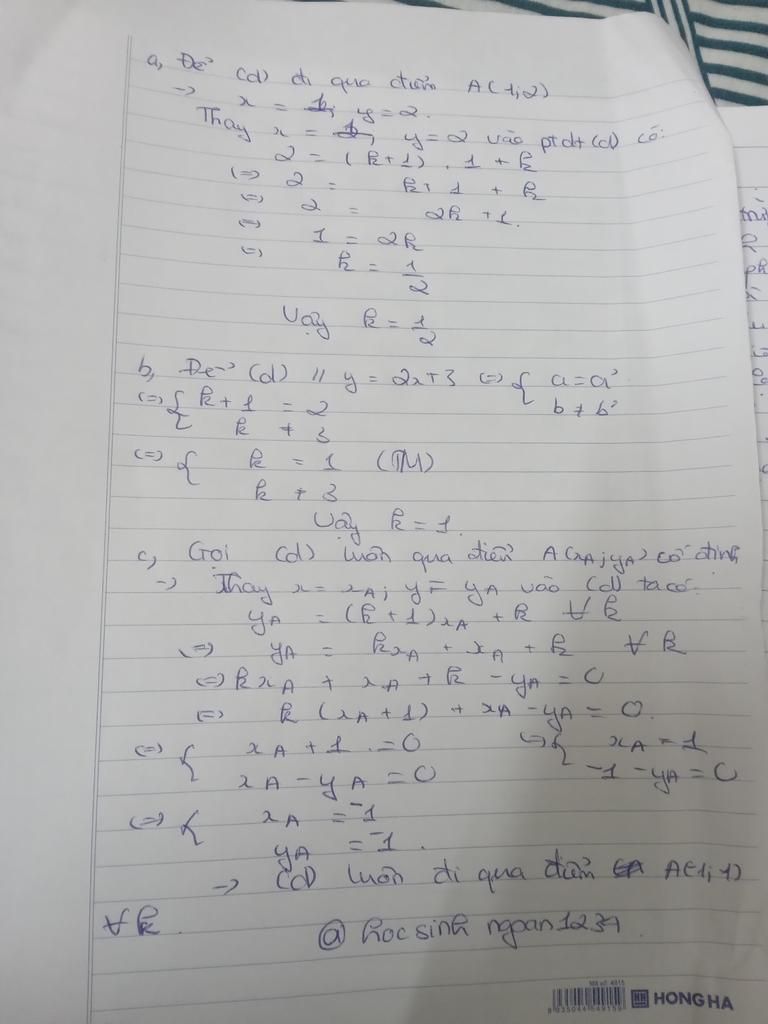 a, Để (d) đi qua điểm A(1;2)
→ x = 1; y = 2.
Thay x = 1, y = 2 vào ptđt (d) có:
2 = (k+1) . 1 + k
(=) 2 = k + 1 + k
(=) 2 = 2k + 1.
(=) 1 = 2k
(=) k = 1/2
Vậy k = 1/2
b, Để (d) // y = 2x+3 (=) { a = a'
b ≠ b'
(=) { k + 1 = 2
k ≠ 3
(=) { k = 1 (TM)
k ≠ 3
Vậy k = 1.
c, Gọi (d) luôn qua điểm A(xA; yA) cố định
→ Thay x = xA; y = yA vào (d) ta có:
yA = (k+1)xA + k ∀ k
(=) yA = kxA + xA + k ∀ k
(=) k xA + xA + k - yA = 0
(=) k (xA + 1) + xA - yA = 0.
(=) { xA + 1 = 0 (=) { xA = 1
xA - yA = 0 -1 - yA = 0
(=) { xA = -1
yA = -1.
→ (d) luôn đi qua điểm A(-1;-1)
∀ k.
@ hocsinh ngoan1234
Mã số: 4815
8935044549159
HH HONG HA